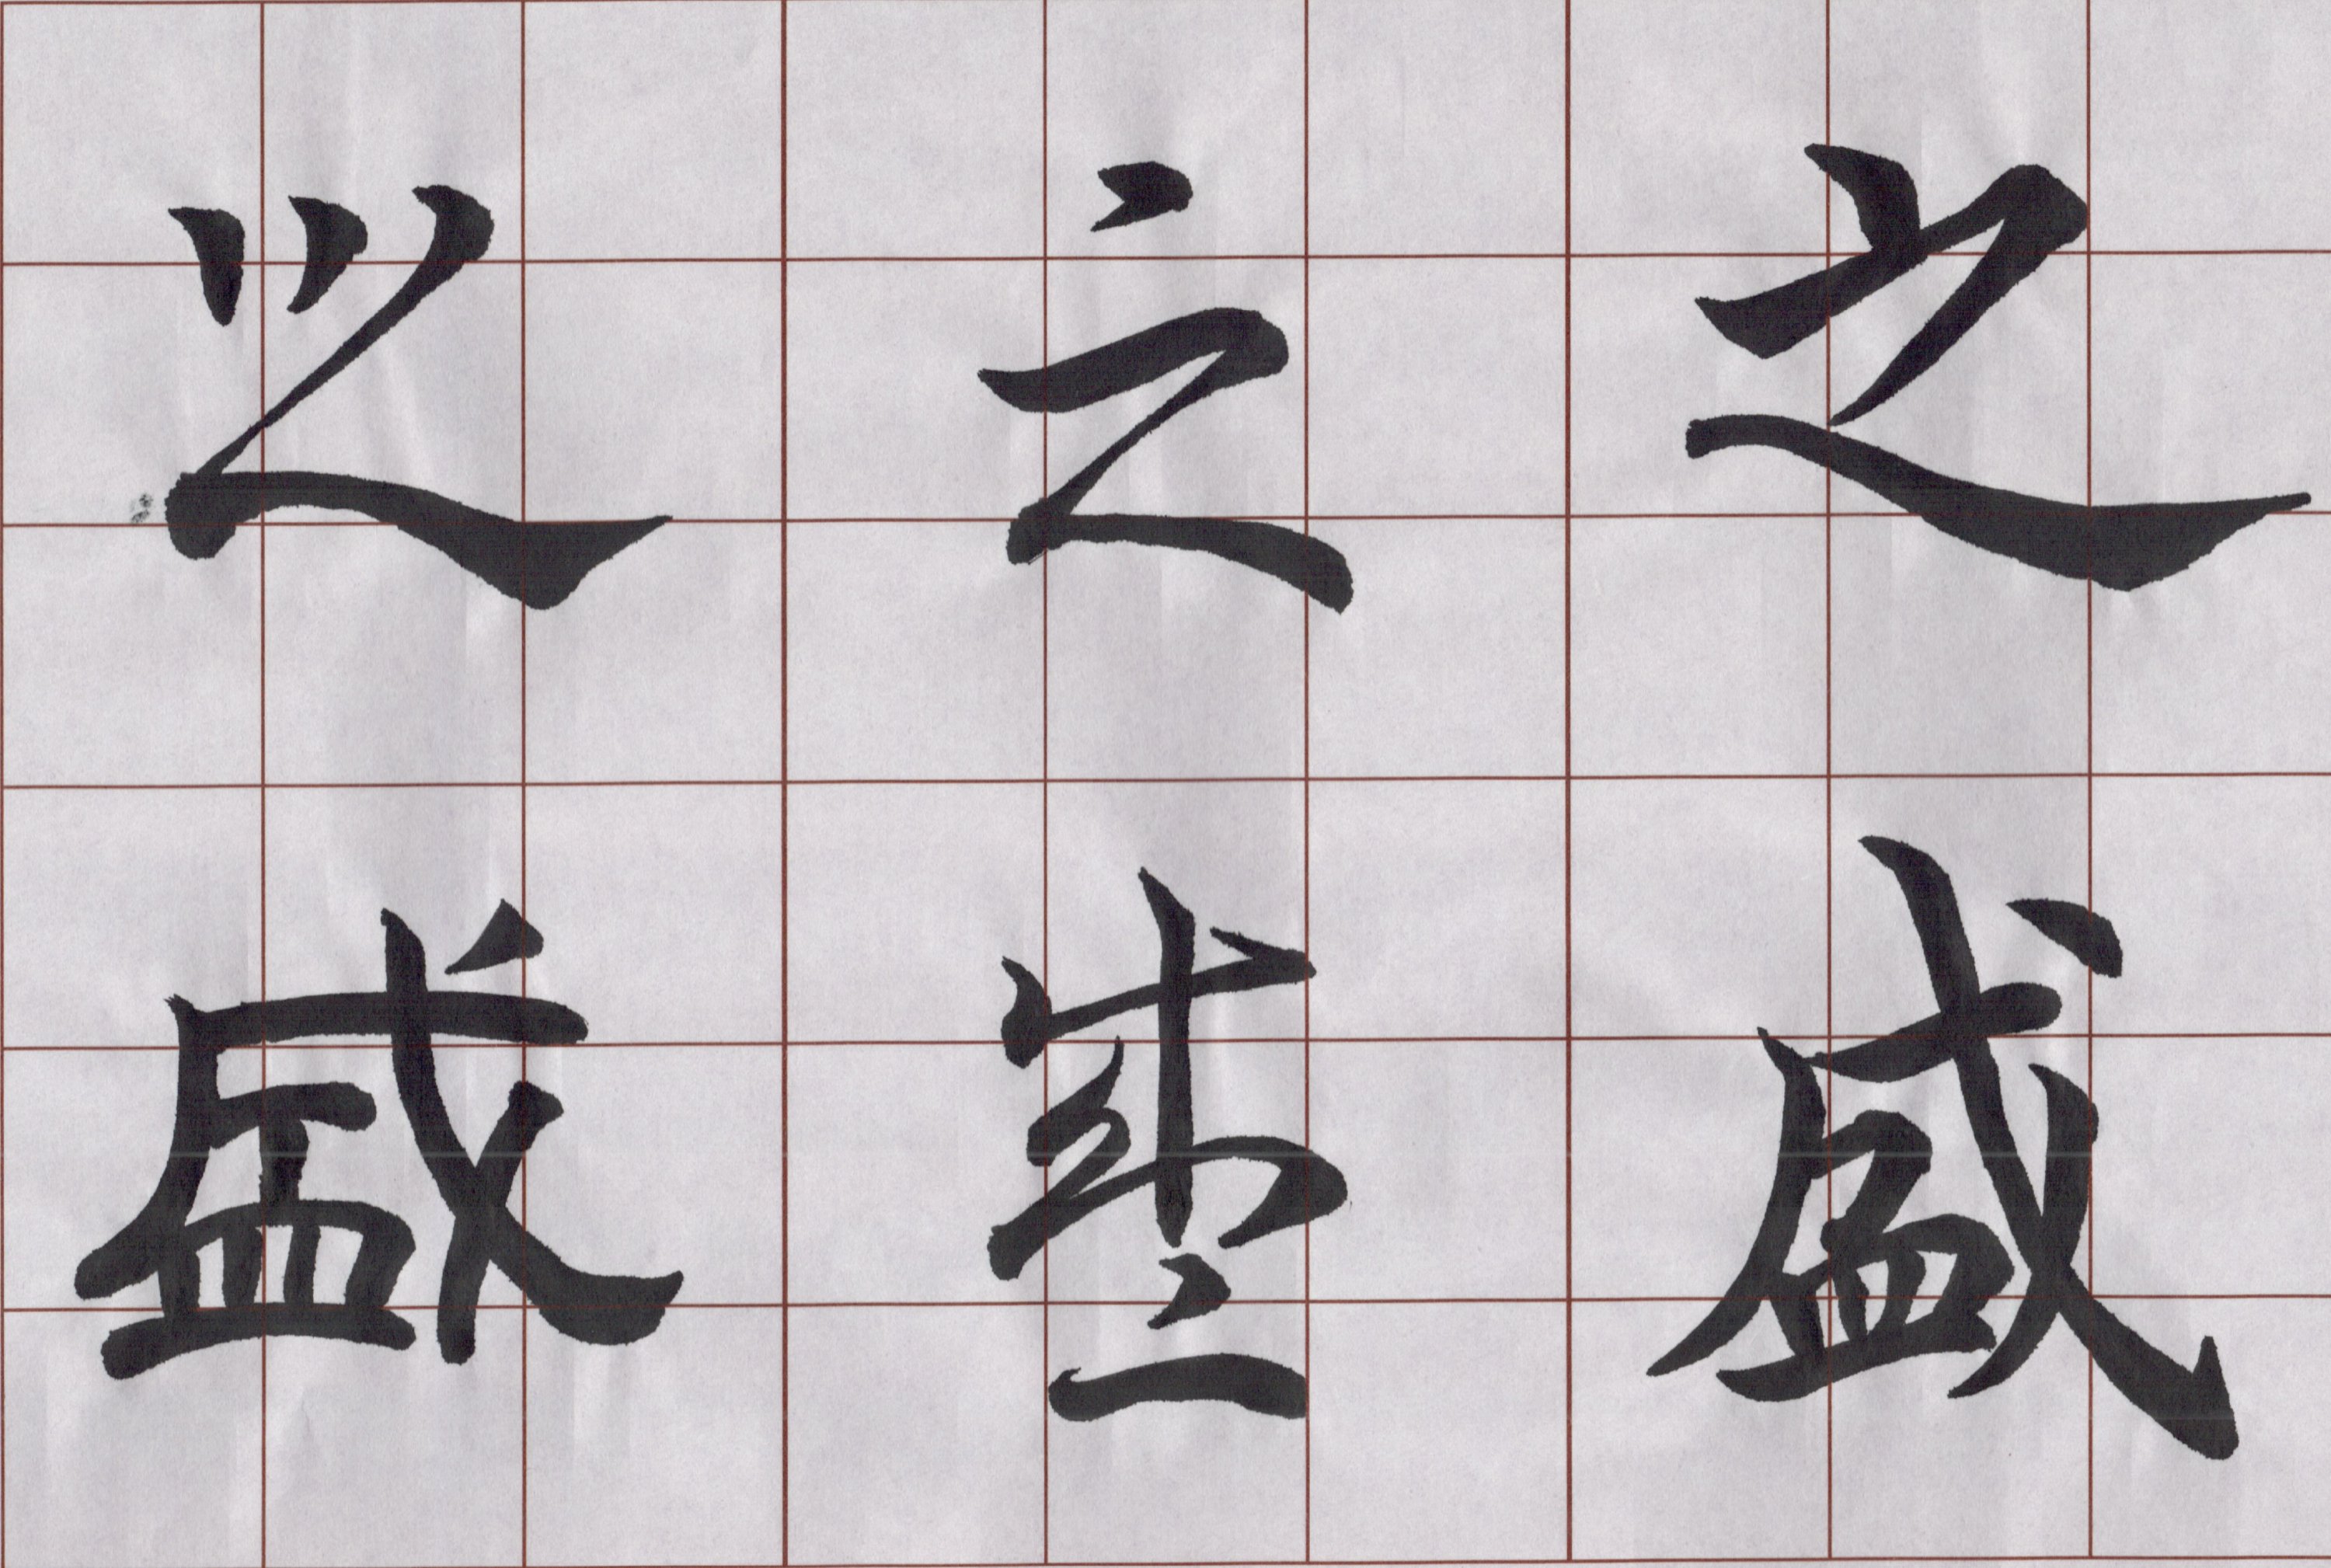 之之之
盛盛盛